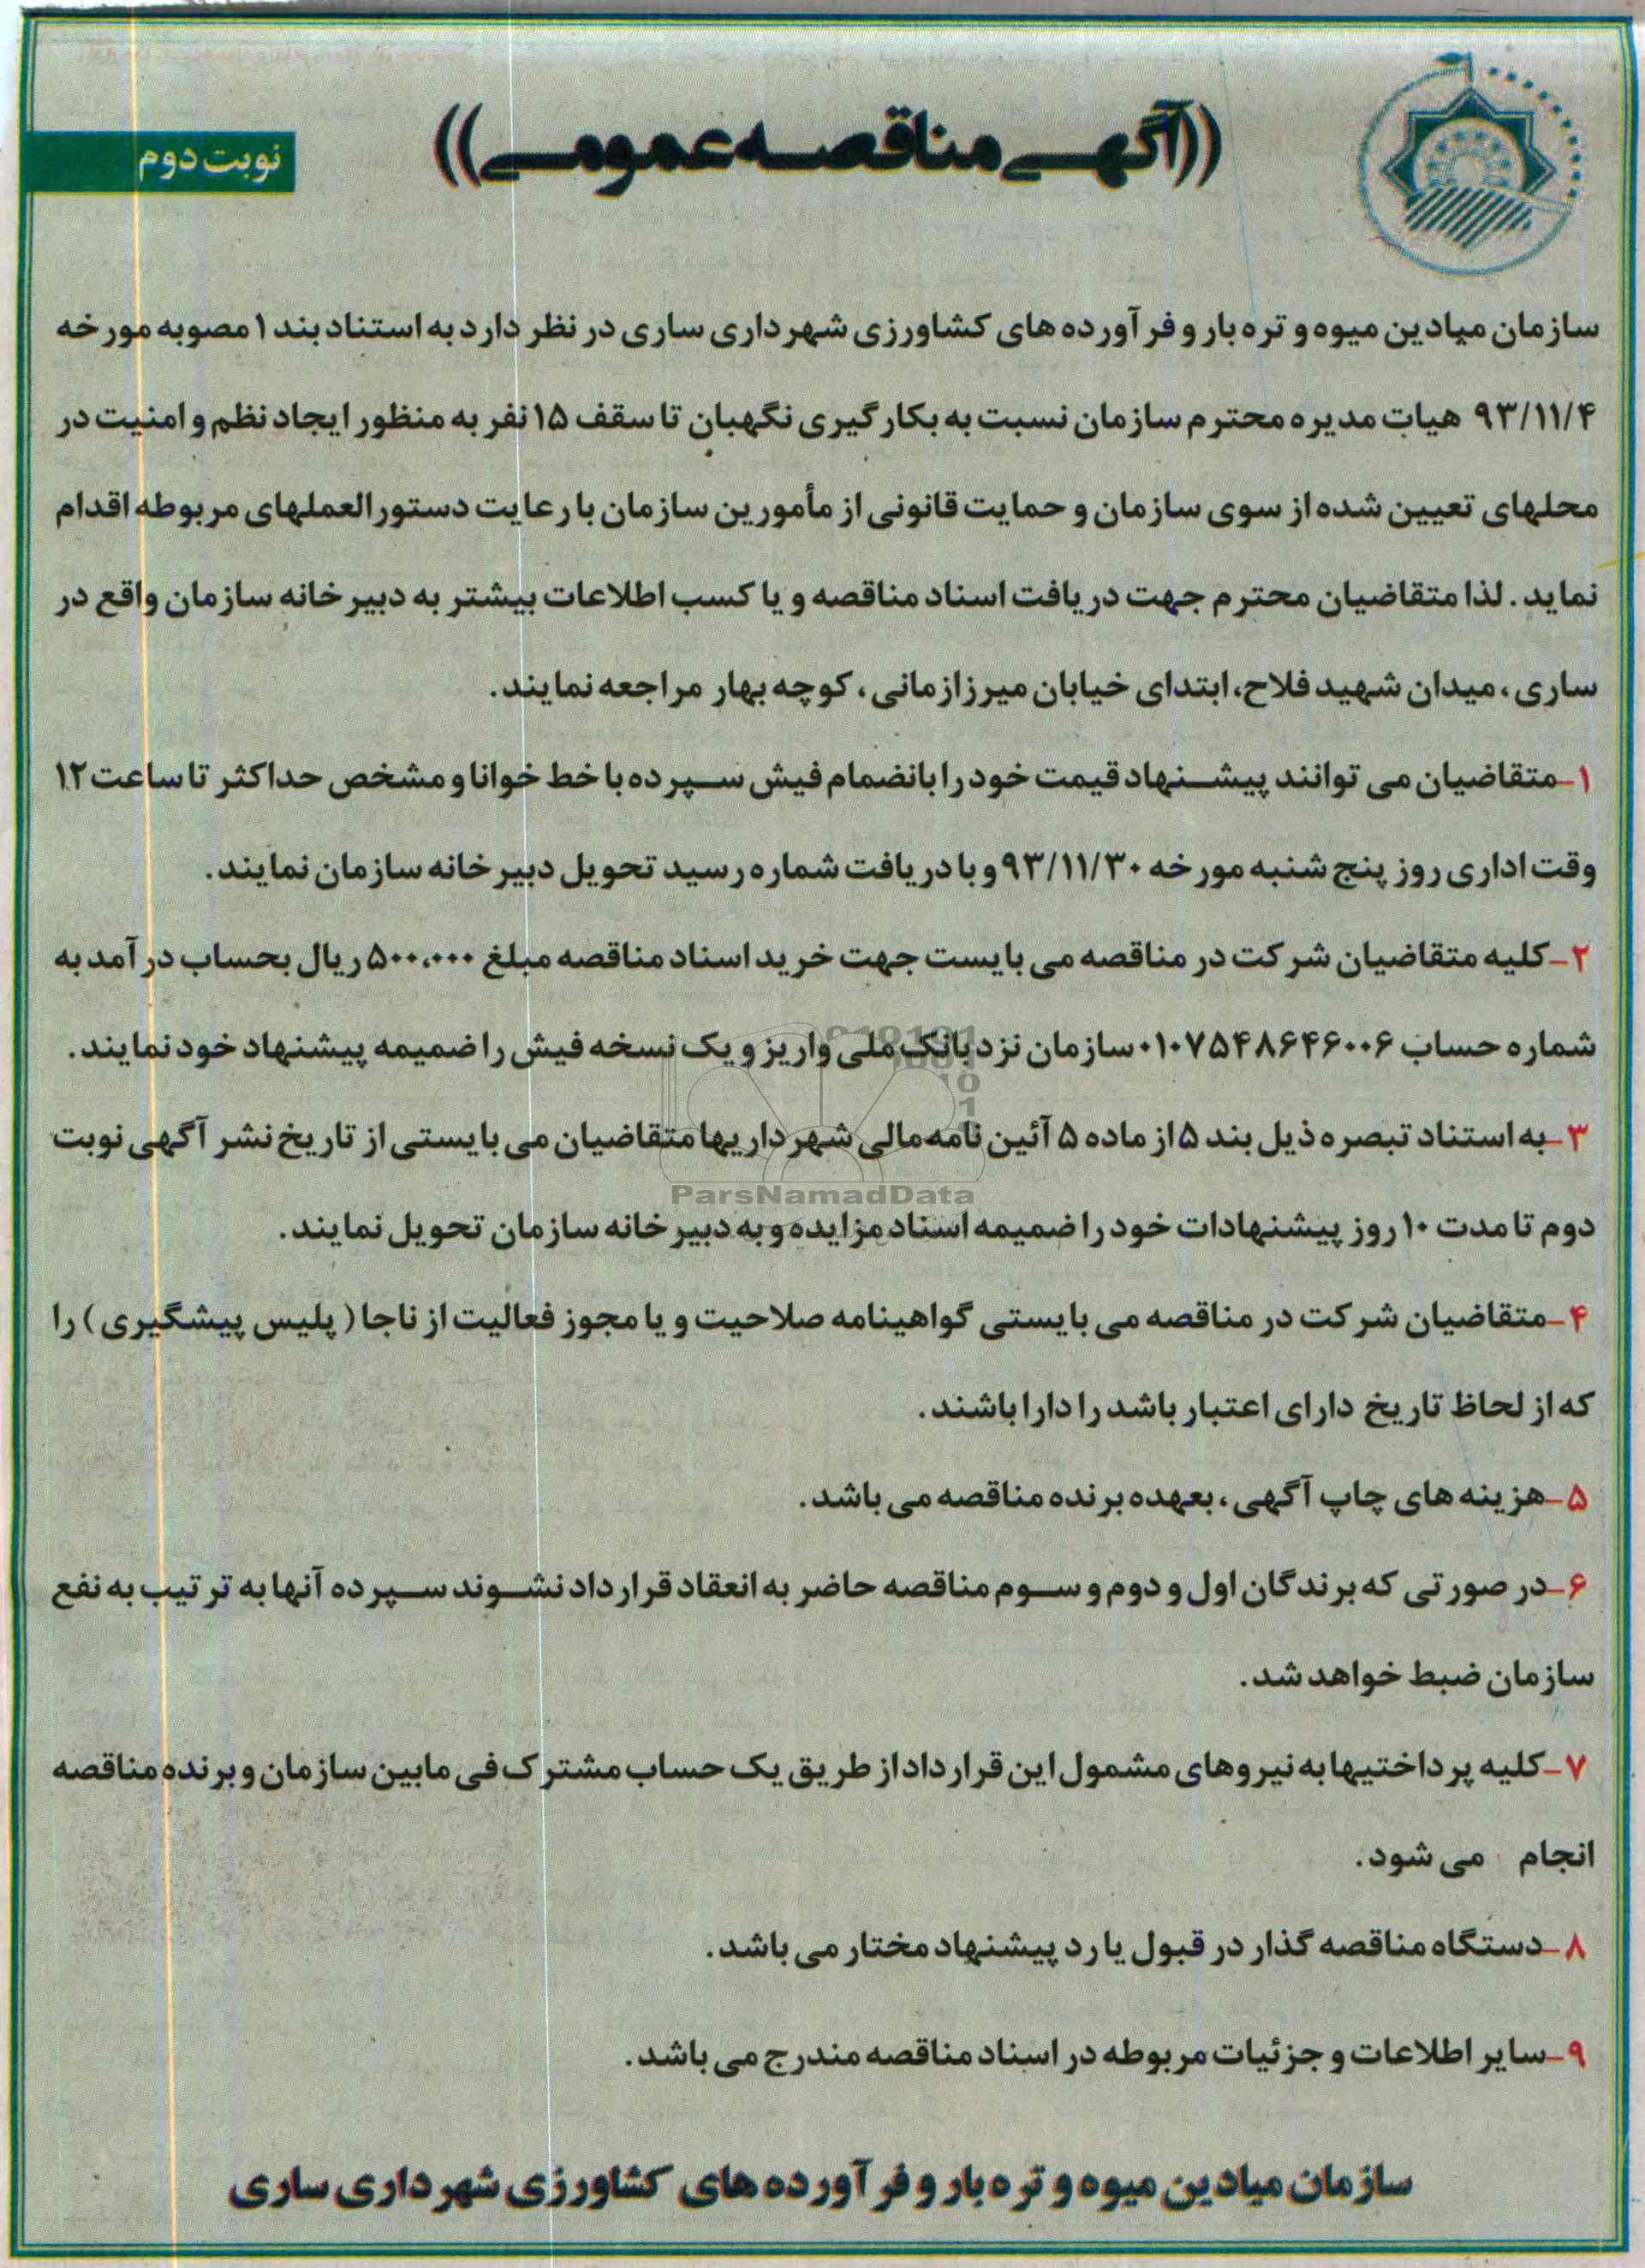 ((آگهی مناقصه عمومی))
نوبت دوم
سازمان میادین میوه و تره بار و فرآورده های کشاورزی شهرداری ساری در نظر دارد به استناد بند ۱ مصوبه مورخه
۹۳/۱۱/۴ هیات مدیره محترم سازمان نسبت به بکارگیری نگهبان تا سقف ۱۵ نفر به منظور ایجاد نظم و امنیت در
محلهای تعیین شده از سوی سازمان و حمایت قانونی از مأمورین سازمان با رعایت دستورالعملهای مربوطه اقدام
نماید. لذا متقاضیان محترم جهت دریافت اسناد مناقصه و یا کسب اطلاعات بیشتر به دبیرخانه سازمان واقع در
ساری، میدان شهید فلاح، ابتدای خیابان میرزازمانی، کوچه بهار مراجعه نمایند.
۱-متقاضیان می توانند پیشنهاد قیمت خود را بانضمام فیش سپرده با خط خوانا و مشخص حداکثر تا ساعت ۱۲
وقت اداری روز پنج شنبه مورخه ۹۳/۱۱/۳۰ و با دریافت شماره رسید تحویل دبیرخانه سازمان نمایند.
۲-کلیه متقاضیان شرکت در مناقصه می بایست جهت خرید اسناد مناقصه مبلغ ۵۰۰،۰۰۰ ریال بحساب درآمد به
شماره حساب ۰۱۰۷۵۴۸۶۴۶۰۰۶ سازمان نزد بانک ملی واریز و یک نسخه فیش را ضمیمه پیشنهاد خود نمایند.
۳-به استناد تبصره ذیل بند ۵ از ماده ۵ آئین نامه مالی شهرداریها متقاضیان می بایستی از تاریخ نشر آگهی نوبت
دوم تا مدت ۱۰ روز پیشنهادات خود را ضمیمه اسناد مزایده و به دبیرخانه سازمان تحویل نمایند.
ParsNamadData
۴-متقاضیان شرکت در مناقصه می بایستی گواهینامه صلاحیت و یا مجوز فعالیت از ناجا (پلیس پیشگیری) را
که از لحاظ تاریخ دارای اعتبار باشد را دارا باشند.
۵-هزینه های چاپ آگهی، بعهده برنده مناقصه می باشد.
۶-در صورتی که برندگان اول و دوم و سوم مناقصه حاضر به انعقاد قرارداد نشوند سپرده آنها به ترتیب به نفع
سازمان ضبط خواهد شد.
۷-کلیه پرداختیها به نیروهای مشمول این قرارداد از طریق یک حساب مشترک فی مابین سازمان و برنده مناقصه
انجام می شود.
۸-دستگاه مناقصه گذار در قبول یا رد پیشنهاد مختار می باشد.
۹-سایر اطلاعات و جزئیات مربوطه در اسناد مناقصه مندرج می باشد.
سازمان میادین میوه و تره بار و فرآورده های کشاورزی شهرداری ساری